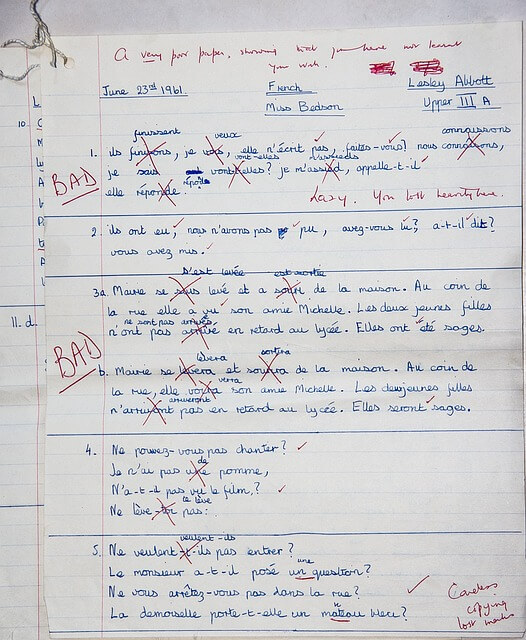 A very poor paper, showing that you have not learnt
your work.
June 23rd 1961. French Lesley Abbott
Miss Bedson Upper III A
finissent veux connaissons
1. ils finirons, je vois, elle n'écrit pas, faites-vous? nous connaisons,
vont-elles m'assieds
je sais vont-elles? je m'assied, appelle-t-il
BAD
répond
elle réponde.
Lazy. You lost heavily here.
2. ils ont eu, nous n'avons pas pu, avez-vous lu? a-t-il dit?
vous avez mis.
s'est levée est sortie
3a. Marie se levé et a sorti de la maison. Au coin de
la rue elle a vu son amie Michelle. Les deux jeunes filles
ne sont pas arrivés
n'ont pas arrivé en retard au lycée. Elles ont été sages.
BAD
lèvera sortira
b. Marie se levera et de la maison. Au coin de
verra
la rue, elle son amie Michelle. Les deux jeunes filles
arriveront
n'arrivont pas en retard au lycée. Elles seront sages.
4. Ne pouvez-vous pas chanter?
de
Je n'ai pas une pomme,
N'a-t-il pas vu le film?
te lève
Ne lève-toi pas.
veulent-ils
5. Ne veulent-t-ils pas entrer?
une
Le monsieur a-t-il posé un question?
Ne vous arrêtez-vous pas dans la rue?
La demoiselle porte-t-elle un mateau bleu?
Careless
copying
lost marks
10.
11. d.